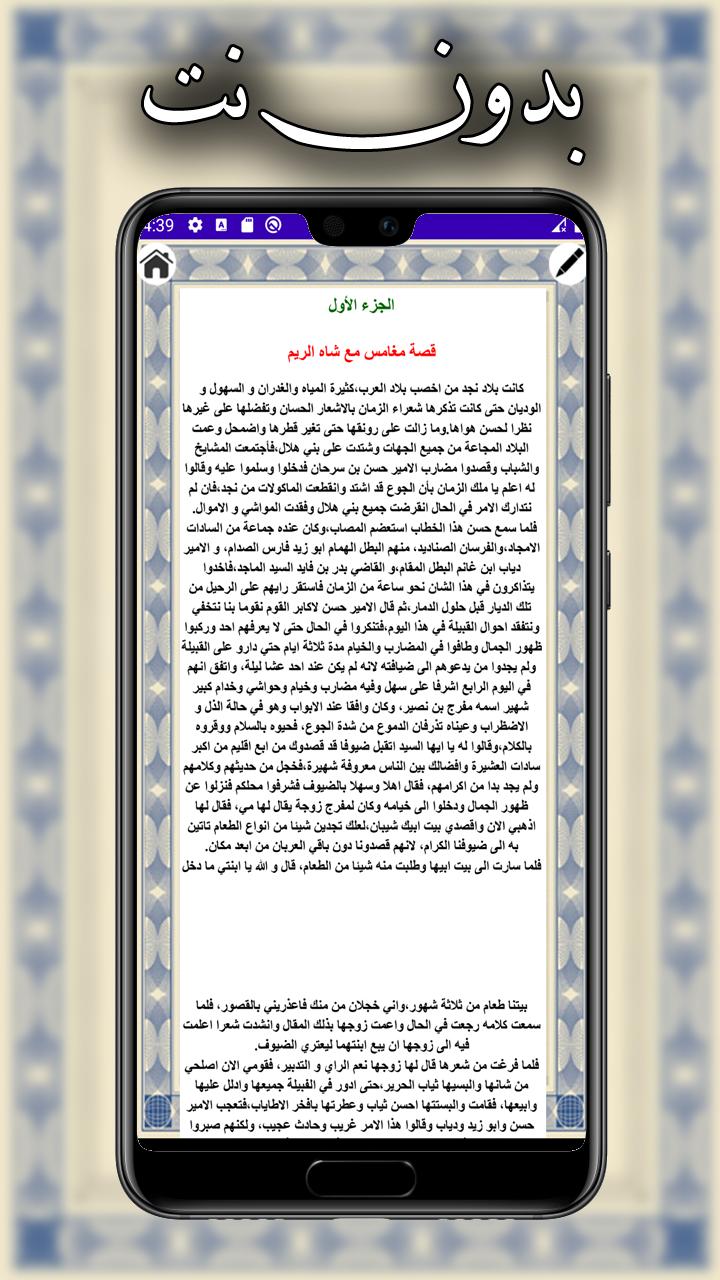 بدون نت
4:39
الجزء الأول
قصة مغامس مع شاه الريم
كانت بلاد نجد من اخصب بلاد العرب،كثيرة المياه والغدران و السهول و
الوديان حتى كانت تذكرها شعراء الزمان بالاشعار الحسان وتفضلها على غيرها
نظرا لحسن هواها.وما زالت على رونقها حتى تغير قطرها واضمحل وعمت
البلاد المجاعة من جميع الجهات وشتدت على بني هلال،فأجتمعت المشايخ
والشباب وقصدوا مضارب الامير حسن بن سرحان فدخلوا وسلموا عليه وقالوا
له اعلم يا ملك الزمان بأن الجوع قد اشتد وانقطعت الماكولات من نجد،فان لم
نتدارك الامر في الحال انقرضت جميع بني هلال وفقدت المواشي و الاموال.
فلما سمع حسن هذا الخطاب استعضم المصاب،وكان عنده جماعة من السادات
الامجاد،والفرسان الصناديد، منهم البطل الهمام ابو زيد فارس الصدام، و الامير
دياب ابن غانم البطل المقام،و القاضي بدر بن فايد السيد الماجد،فاخدوا
يتذاكرون في هذا الشان نحو ساعة من الزمان فاستقر رايهم على الرحيل من
تلك الديار قبل حلول الدمار،ثم قال الامير حسن لاكابر القوم نقوما بنا نتخفي
ونتفقد احوال القبيلة في هذا اليوم،فتنكروا في الحال حتى لا يعرفهم احد وركبوا
ظهور الجمال وطافوا في المضارب والخيام مدة ثلاثة ايام حتي دارو على القبيلة
ولم يجدوا من يدعوهم الى ضيافته لانه لم يكن عند احد عشا ليلة، واتفق انهم
في اليوم الرابع اشرفا على سهل وفيه مضارب وخيام وحواشي وخدام كبير
شهير اسمه مفرج بن نصير، وكان وافقا عند الابواب وهو في حالة الذل و
الاضطراب وعيناه تذرفان الدموع من شدة الجوع، فحيوه بالسلام ووقروه
بالكلام،وقالوا له يا ايها السيد اتقبل ضيوفا قد قصدوك من ابع اقليم من اكبر
سادات العشيرة وافضالك بين الناس معروفة شهيرة،فخجل من حديثهم وكلامهم
ولم يجد بدا من اكرامهم، فقال اهلا وسهلا بالضيوف فشرفوا محلكم فنزلوا عن
ظهور الجمال ودخلوا الى خيامه وكان لمفرج زوجة يقال لها مي، فقال لها
اذهبي الان واقصدي بيت ابيك شيبان،لعلك تجدين شيئا من انواع الطعام تاتين
به الى ضيوفنا الكرام، لانهم قصدونا دون باقي العربان من ابعد مكان.
فلما سارت الى بيت ابيها وطلبت منه شيئا من الطعام، قال و الله يا ابنتي ما دخل
بيتنا طعام من ثلاثة شهور،واني خجلان من منك فاعذريني بالقصور، فلما
سمعت كلامه رجعت في الحال واعمت زوجها بذلك المقال وانشدت شعرا اعلمت
فيه الى زوجها ان يبع ابنتهما ليعتري الضيوف.
فلما فرغت من شعرها قال لها زوجها نعم الراي و التدبير، فقومي الان اصلحي
من شانها والبسيها ثياب الحرير،حتى ادور في القبيلة جميعها وادلل عليها
وابيعها، فقامت والبستتها احسن ثياب وعطرتها بأفخر الاطاياب،فتعجب الامير
حسن وابو زيد ودياب وقالوا هذا الامر غريب وحادث عجيب، ولكنهم صبروا